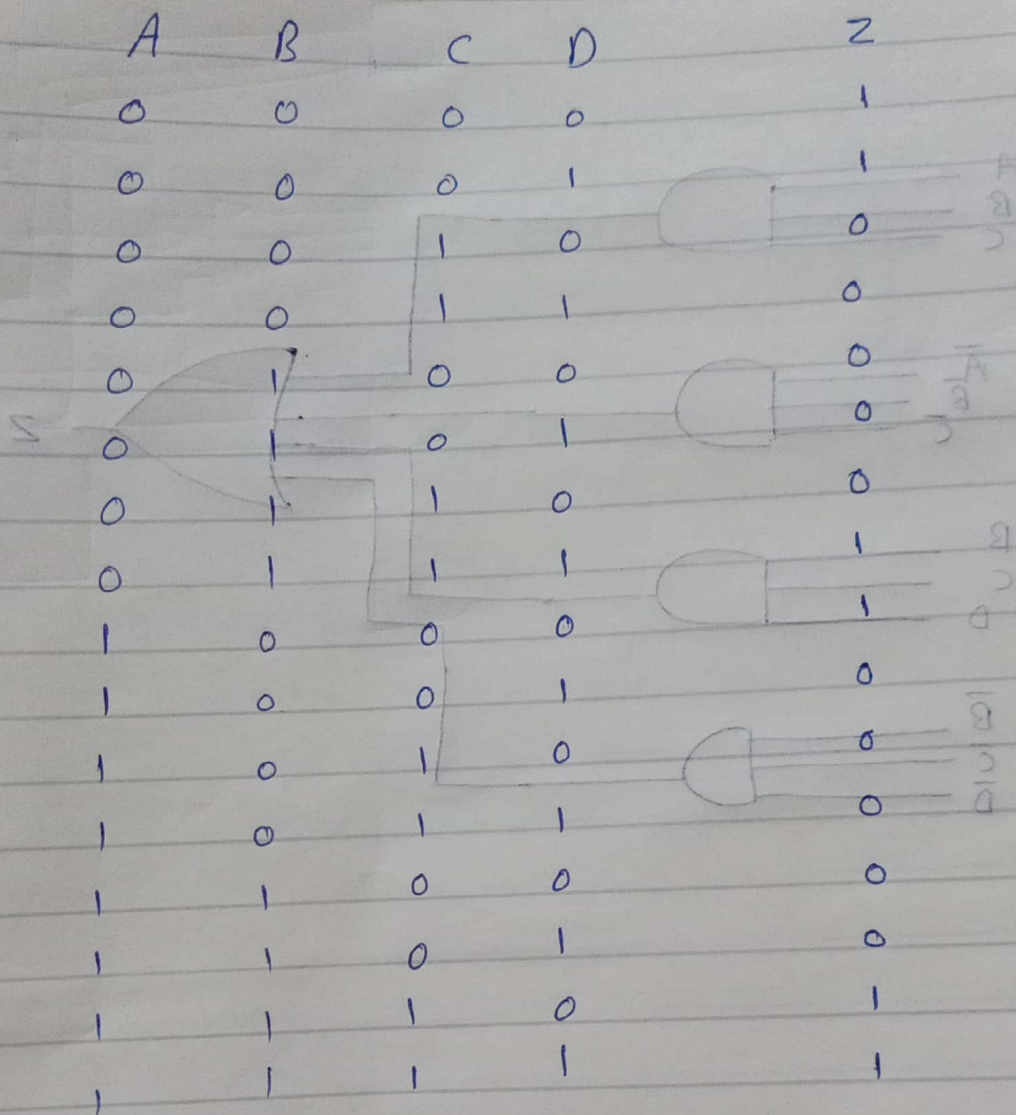 A B C D Z
0 0 0 0 1
0 0 0 1 1
0 0 1 0 0
0 0 1 1 0
0 1 0 0 0
0 1 0 1 0
0 1 1 0 0
0 1 1 1 1
1 0 0 0 1
1 0 0 1 0
1 0 1 0 0
1 0 1 1 0
1 1 0 0 0
1 1 0 1 0
1 1 1 0 1
1 1 1 1 1